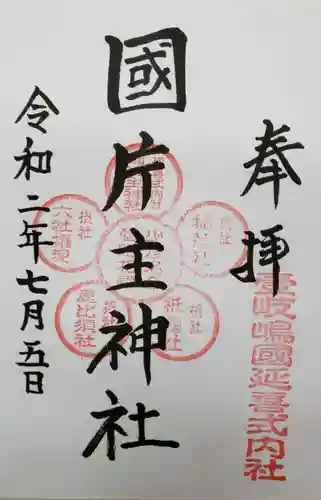 奉拝
壹岐嶋國延喜式内社
國片主神社
令和二年七月五日
摂社
六社権現
摂社
恵比須社
摂社
摂社